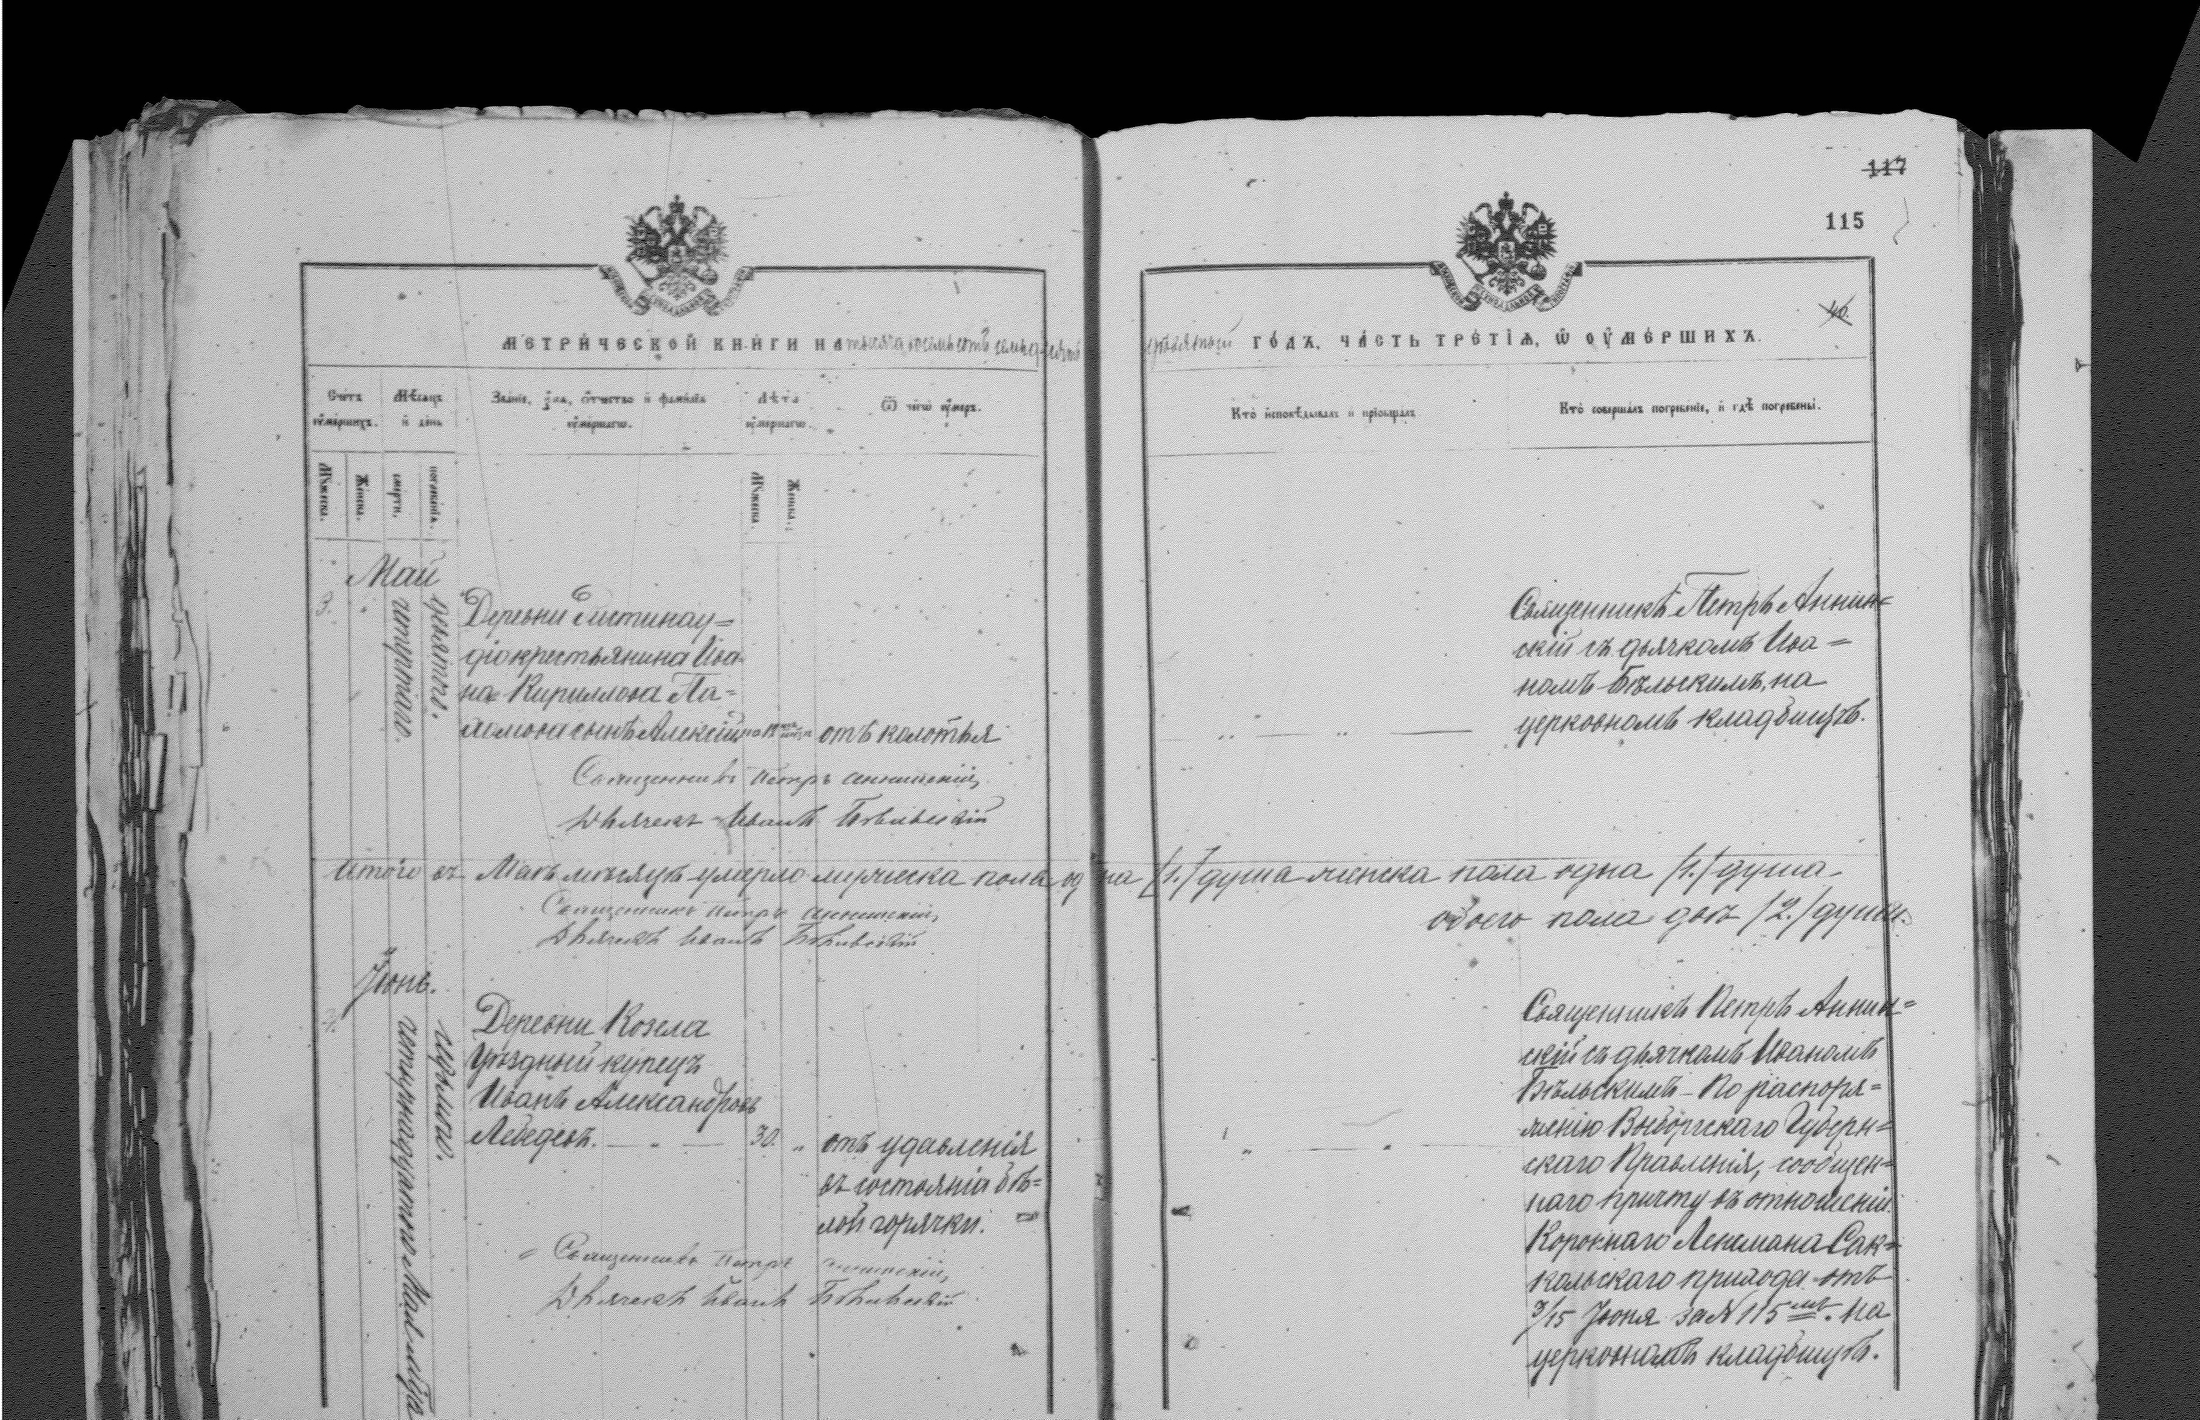 117
115
46.
МЕТРИЧЕСКОЙ КНИГИ НА тысяча восемьсотъ семьдесятъ
девятый ГОДЪ, ЧАСТЬ ТРЕТІЯ, Ѿ ОУМЕРШИХЪ.
Счетъ оумершихъ.
Мѣсяцъ и день
Званіе, имя, отчество и фамилія оумершагѡ.
Лѣта оумершагѡ.
Ѿ чегѡ оумеръ.
Кто исповѣдывалъ и пріобщалъ
Кто совершалъ погребеніе, и гдѣ погребены.
Мужеска.
Женска.
смерти.
погребенія.
Мужеска.
Женска.
Май
3.
четвертаго.
девятаго.
Деревни
крестьянина Ива-
на Кириллова Па-
сынъ Алексій
отъ колотья
Священникъ Петръ Аннин=
скій съ дьячкомъ Ива=
номъ Бѣльскимъ, на
церковномъ кладбищѣ.
Священникъ Петръ Аннинскій,
Дьячекъ Иванъ Бѣльскій
Итого въ Маѣ мѣсяцѣ умерло мужеска пола одна /1./ душа женска пола одна /1./ душа
обоего пола двѣ /2./ души.
Священникъ Петръ Аннинскій,
Дьячекъ Иванъ Бѣльскій
Іюнь.
4.
четырнадцатого Мая
седьмого.
Деревни Козела
Уѣздный купецъ
Иванъ Александровъ
Лебедевъ. 30.
отъ удавленія
въ состояніи бѣ=
лой горячки.
Священникъ Петръ Аннин=
скій съ дьячкомъ Иваномъ
Бѣльскимъ – По распоря=
женію Выборгскаго Губерн=
скаго Правленія, сообщен=
наго причту въ отношеніи
Короннаго Ленсмана Сак=
кольскаго прихода отъ
3/15 Іюня за № 115мъ. На
церковномъ кладбищѣ.
Священникъ Петръ Аннинскій,
Дьячекъ Иванъ Бѣльскій